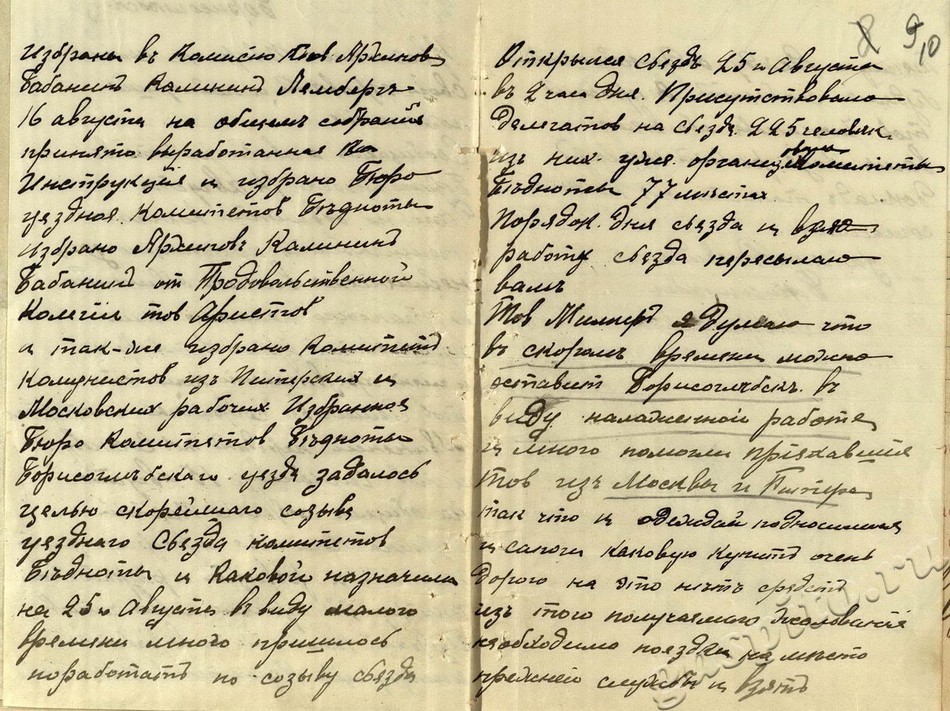 избраны въ Комисию тов Архиповъ
Бабанинъ Калининъ Лембергъ
16 августа на общемъ собрании
принято выработанная
Инструкция и избрано Бюро
уездная Комитетов Бѣдноты
Избрано Архиповъ Калининъ
Бабанинъ от Продовольственной
Колегии тов Аристов
и так-же избрано Комитетъ
Комунистов из Питерских и
Московских рабочих Избранная
Бюро Комитетов Бѣдноты
Борисоглѣбскаго уезда задалось
целью скорейшаго созыва
уезднаго Съезда комитетов
Бѣдноты и Каковой назначили
на 25го Августа в виду малого
времени много пришлось
поработать по созыву съезда
8 9 10
Открылся съездъ 25го Августа
въ 2 часа дня. Присутствовало
Делегатов на съезде 225 человѣк
изъ них уже организовали комитеты
Бѣдноты 77 местах
порядок дня съезда и всю
работу съезда пересылаю
вамъ
Тов Миллеръ я думаю что
въ скоромъ времени можно
оставить Борисоглѣбскъ в
виду налаженной работе
и много помогли приехавшие
тов изъ Москвы и Питера
так что и одеждой подносился
и сапоги каковую купить очень
дорого на это нѣтъ средств
изъ того получаемаго жалования
необходимо поездка на место
прежней службы и взять